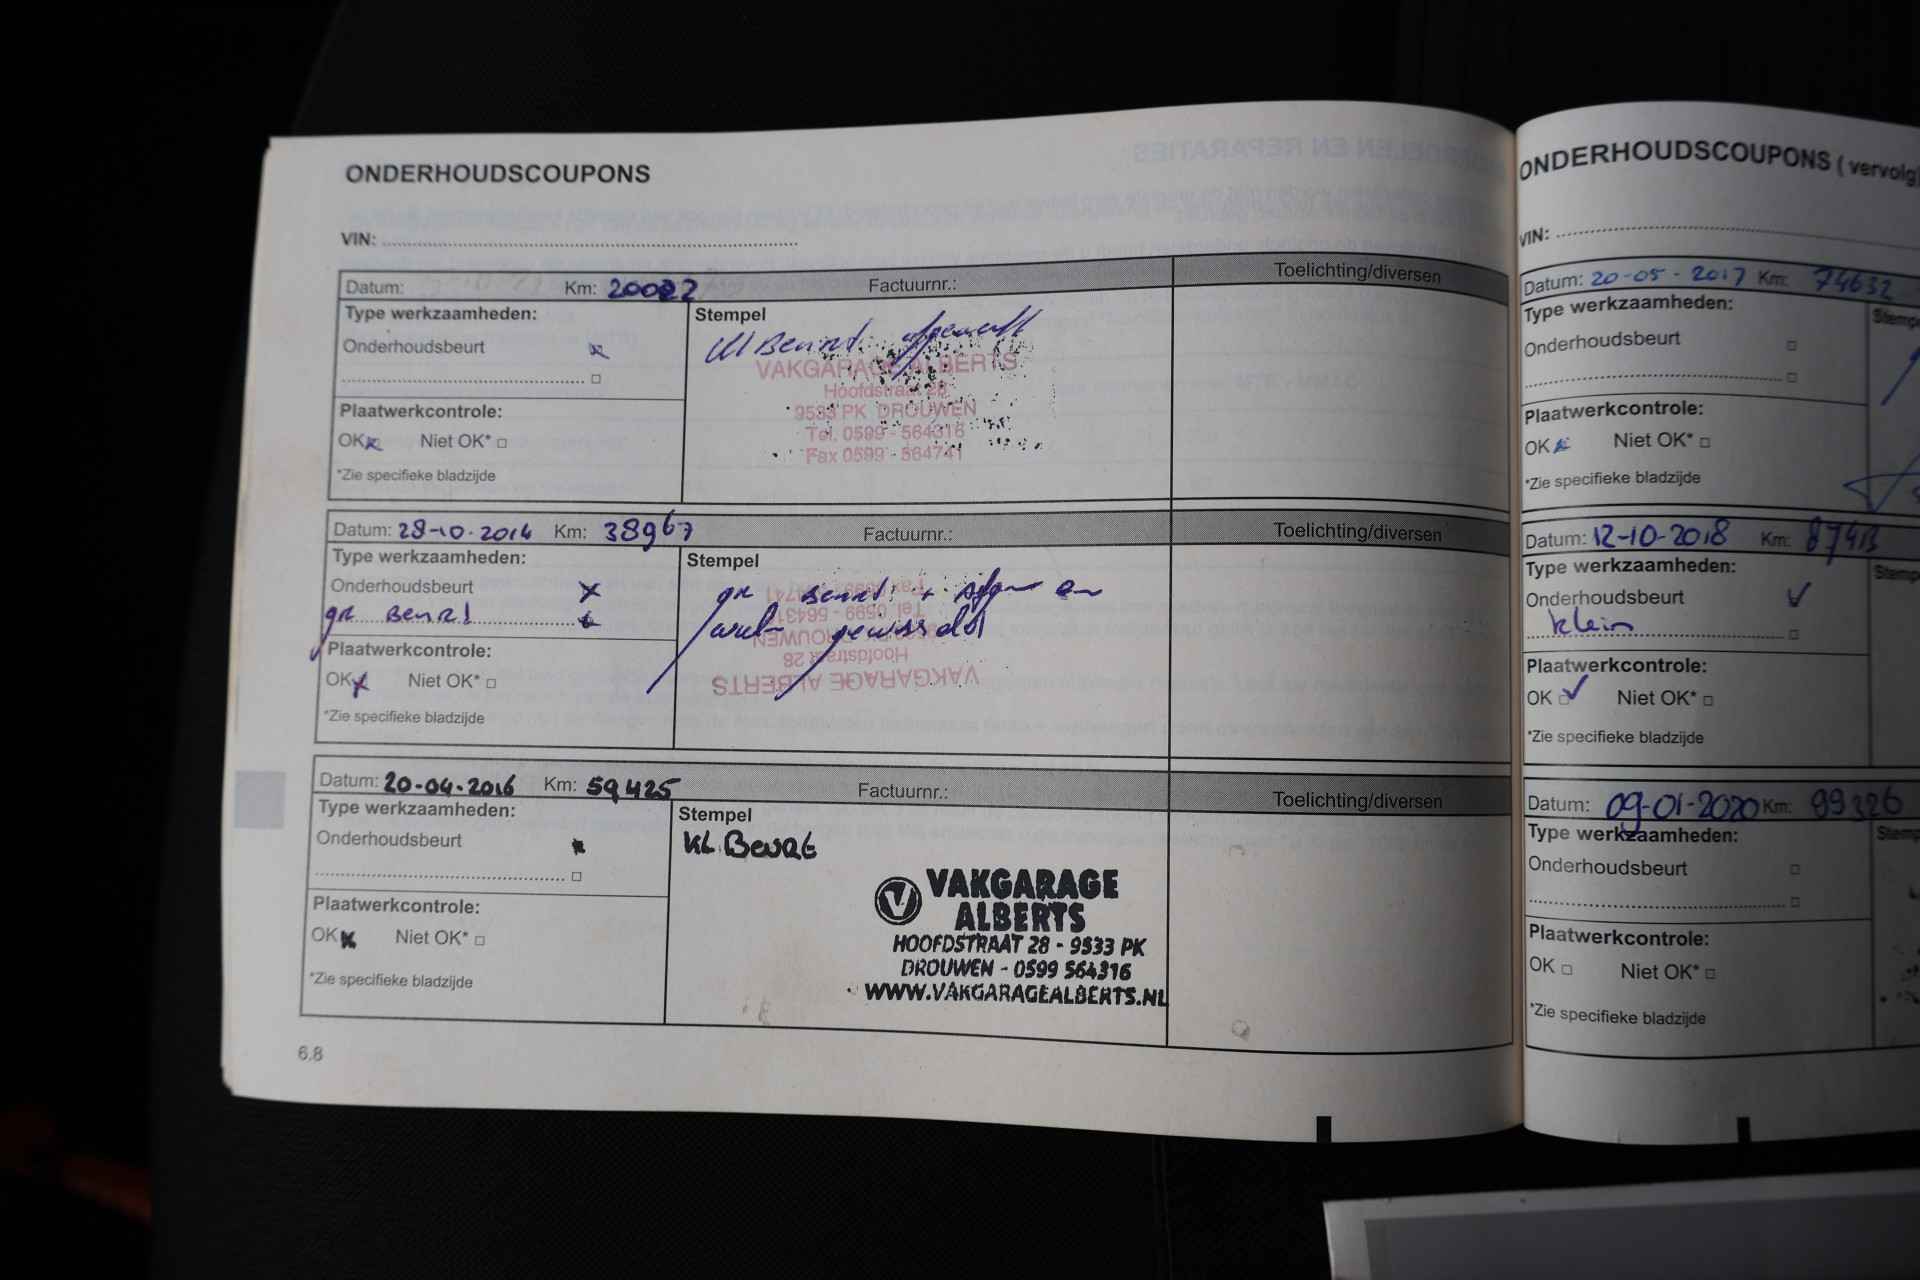 ONDERHOUDSCOUPONS
VIN:
Datum: Km: 20022 Factuurnr.: Toelichting/diversen
Type werkzaamheden: Stempel
Onderhoudsbeurt
Kl Beurt
VAKGARAGE ALBERTS
Hoofdstraat 28
9533 PK DROUWEN
Tel. 0599 - 564316
Fax 0599 - 564741
Plaatwerkcontrole:
OK Niet OK*
*Zie specifieke bladzijde
Datum: 28-10-2014 Km: 38967 Factuurnr.: Toelichting/diversen
Type werkzaamheden: Stempel
Onderhoudsbeurt
gr Beurt
gr Beurt +
gewisseld
Fax 0599 - 564741
Tel. 0599 - 564316
9533 PK DROUWEN
Hoofdstraat 28
VAKGARAGE ALBERTS
Plaatwerkcontrole:
OK Niet OK*
*Zie specifieke bladzijde
Datum: 20-04-2016 Km: 59425 Factuurnr.: Toelichting/diversen
Type werkzaamheden: Stempel
Onderhoudsbeurt
KL Beurt
VAKGARAGE
ALBERTS
HOOFDSTRAAT 28 - 9533 PK
DROUWEN - 0599 564316
WWW.VAKGARAGEALBERTS.NL
Plaatwerkcontrole:
OK Niet OK*
*Zie specifieke bladzijde
6.8
ONDERHOUDSCOUPONS ( vervolg)
VIN:
Datum: 20-05-2017 Km: 74632
Type werkzaamheden:
Onderhoudsbeurt
Plaatwerkcontrole:
OK Niet OK*
*Zie specifieke bladzijde
Datum: 12-10-2018 Km:
Type werkzaamheden:
Onderhoudsbeurt
klein
Plaatwerkcontrole:
OK Niet OK*
*Zie specifieke bladzijde
Datum: 09-01-2020 Km: 99326
Type werkzaamheden:
Onderhoudsbeurt
Plaatwerkcontrole:
OK Niet OK*
*Zie specifieke bladzijde